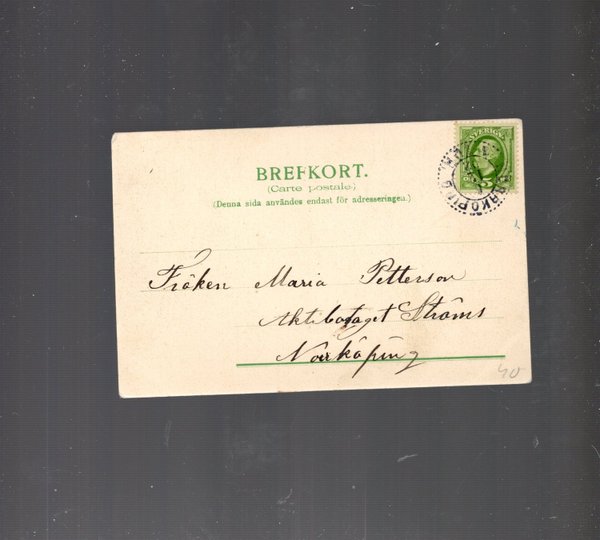 BREFKORT.
(Carte postale)
(Denna sida användes endast för adresseringen.)
SVERIGE
5
Fröken Maria Petterson
Aktibolaget Ströms
Norrköping
40